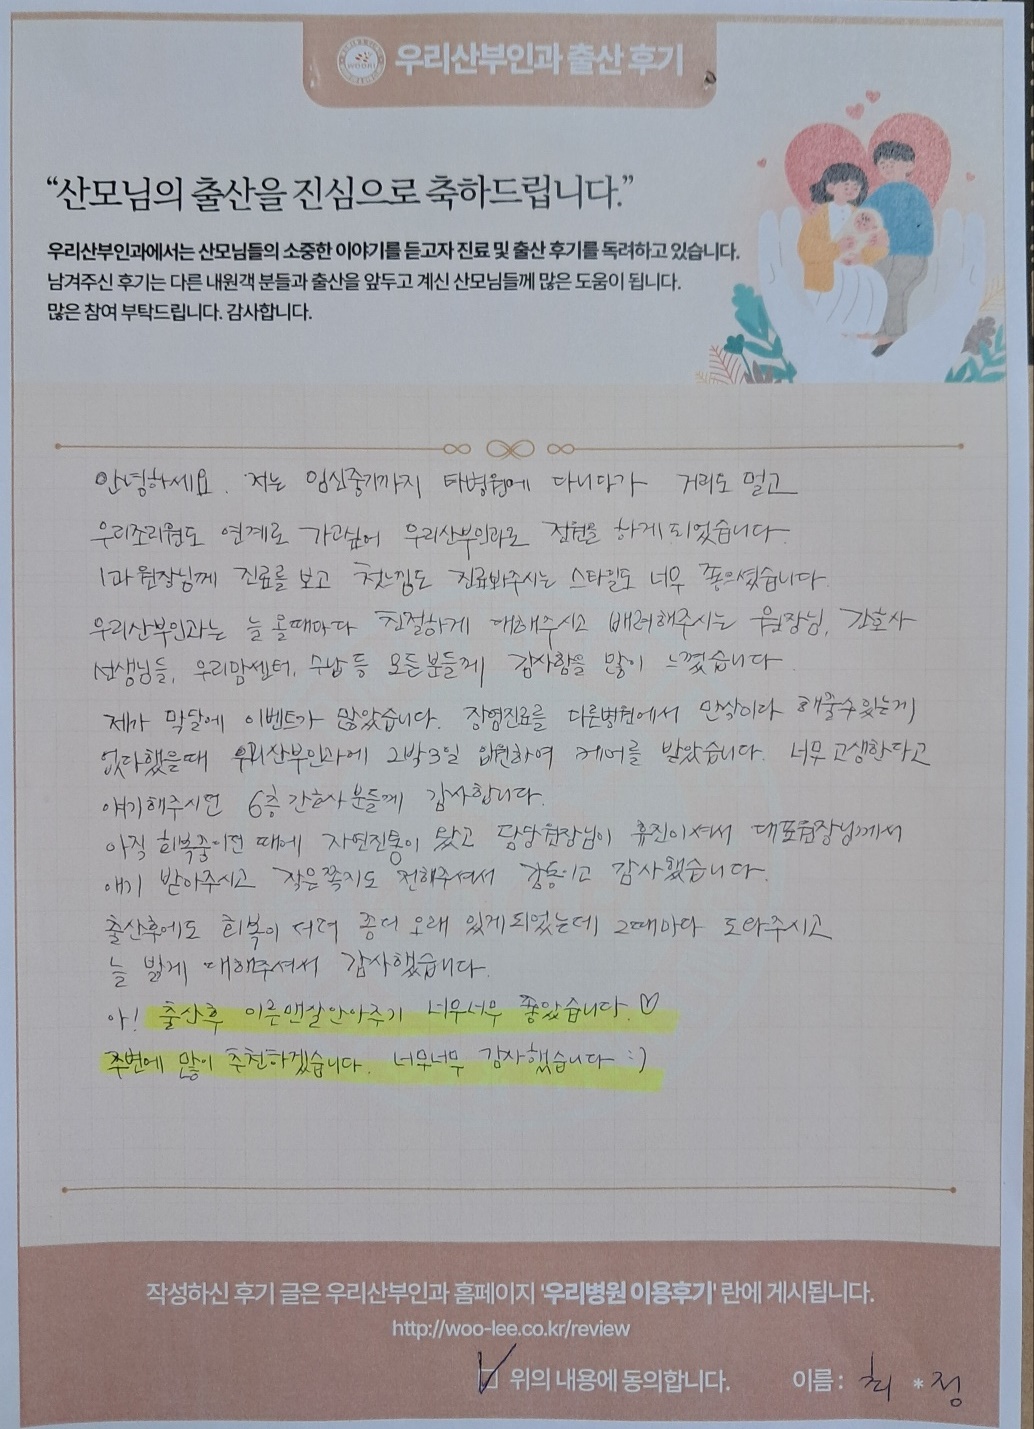 우리산부인과 출산 후기
“산모님의 출산을 진심으로 축하드립니다.”
우리산부인과에서는 산모님들의 소중한 이야기를 듣고자 진료 및 출산 후기를 독려하고 있습니다.
남겨주신 후기는 다른 내원객 분들과 출산을 앞두고 계신 산모님들께 많은 도움이 됩니다.
많은 참여 부탁드립니다. 감사합니다.
안녕하세요. 저는 임신중기까지 타병원에 다니다가 거리도 멀고
우리조리원도 연계로 가고싶어 우리산부인과로 전원을 하게 되었습니다.
1과 원장님께 진료를 보고 첫느낌도 진료봐주시는 스타일도 너무 좋으셨습니다.
우리산부인과는 늘 올때마다 친절하게 대해주시고 배려해주시는 원장님, 간호사
선생님들, 우리맘센터, 수납 등 모든분들께 감사함을 많이 느꼈습니다.
제가 막달에 이벤트가 많았습니다. 장염진료를 다른병원에서 만삭이라 해줄수있는게
없다했을때 우리산부인과에 2박3일 입원하여 케어를 받았습니다. 너무고생한다고
얘기해주시던 6층 간호사분들께 감사합니다.
아직 회복중이던 때에 자연진통이 왔고 담당원장님이 휴진이셔서 대표원장님께서
애기 받아주시고 작은쪽지도 전해주셔서 감동이고 감사했습니다.
출산후에도 회복이 더뎌 좀더 오래 있게되었는데 그때마다 도와주시고
늘 밝게 대해주셔서 감사했습니다.
아! 출산후 이른맨살안아주기 너무너무 좋았습니다.♡
주변에 많이 추천하겠습니다. 너무너무 감사했습니다 :)
작성하신 후기 글은 우리산부인과 홈페이지 '우리병원 이용후기' 란에 게시됩니다.
http://woo-lee.co.kr/review
위의 내용에 동의합니다. 이름 : 최 * 정